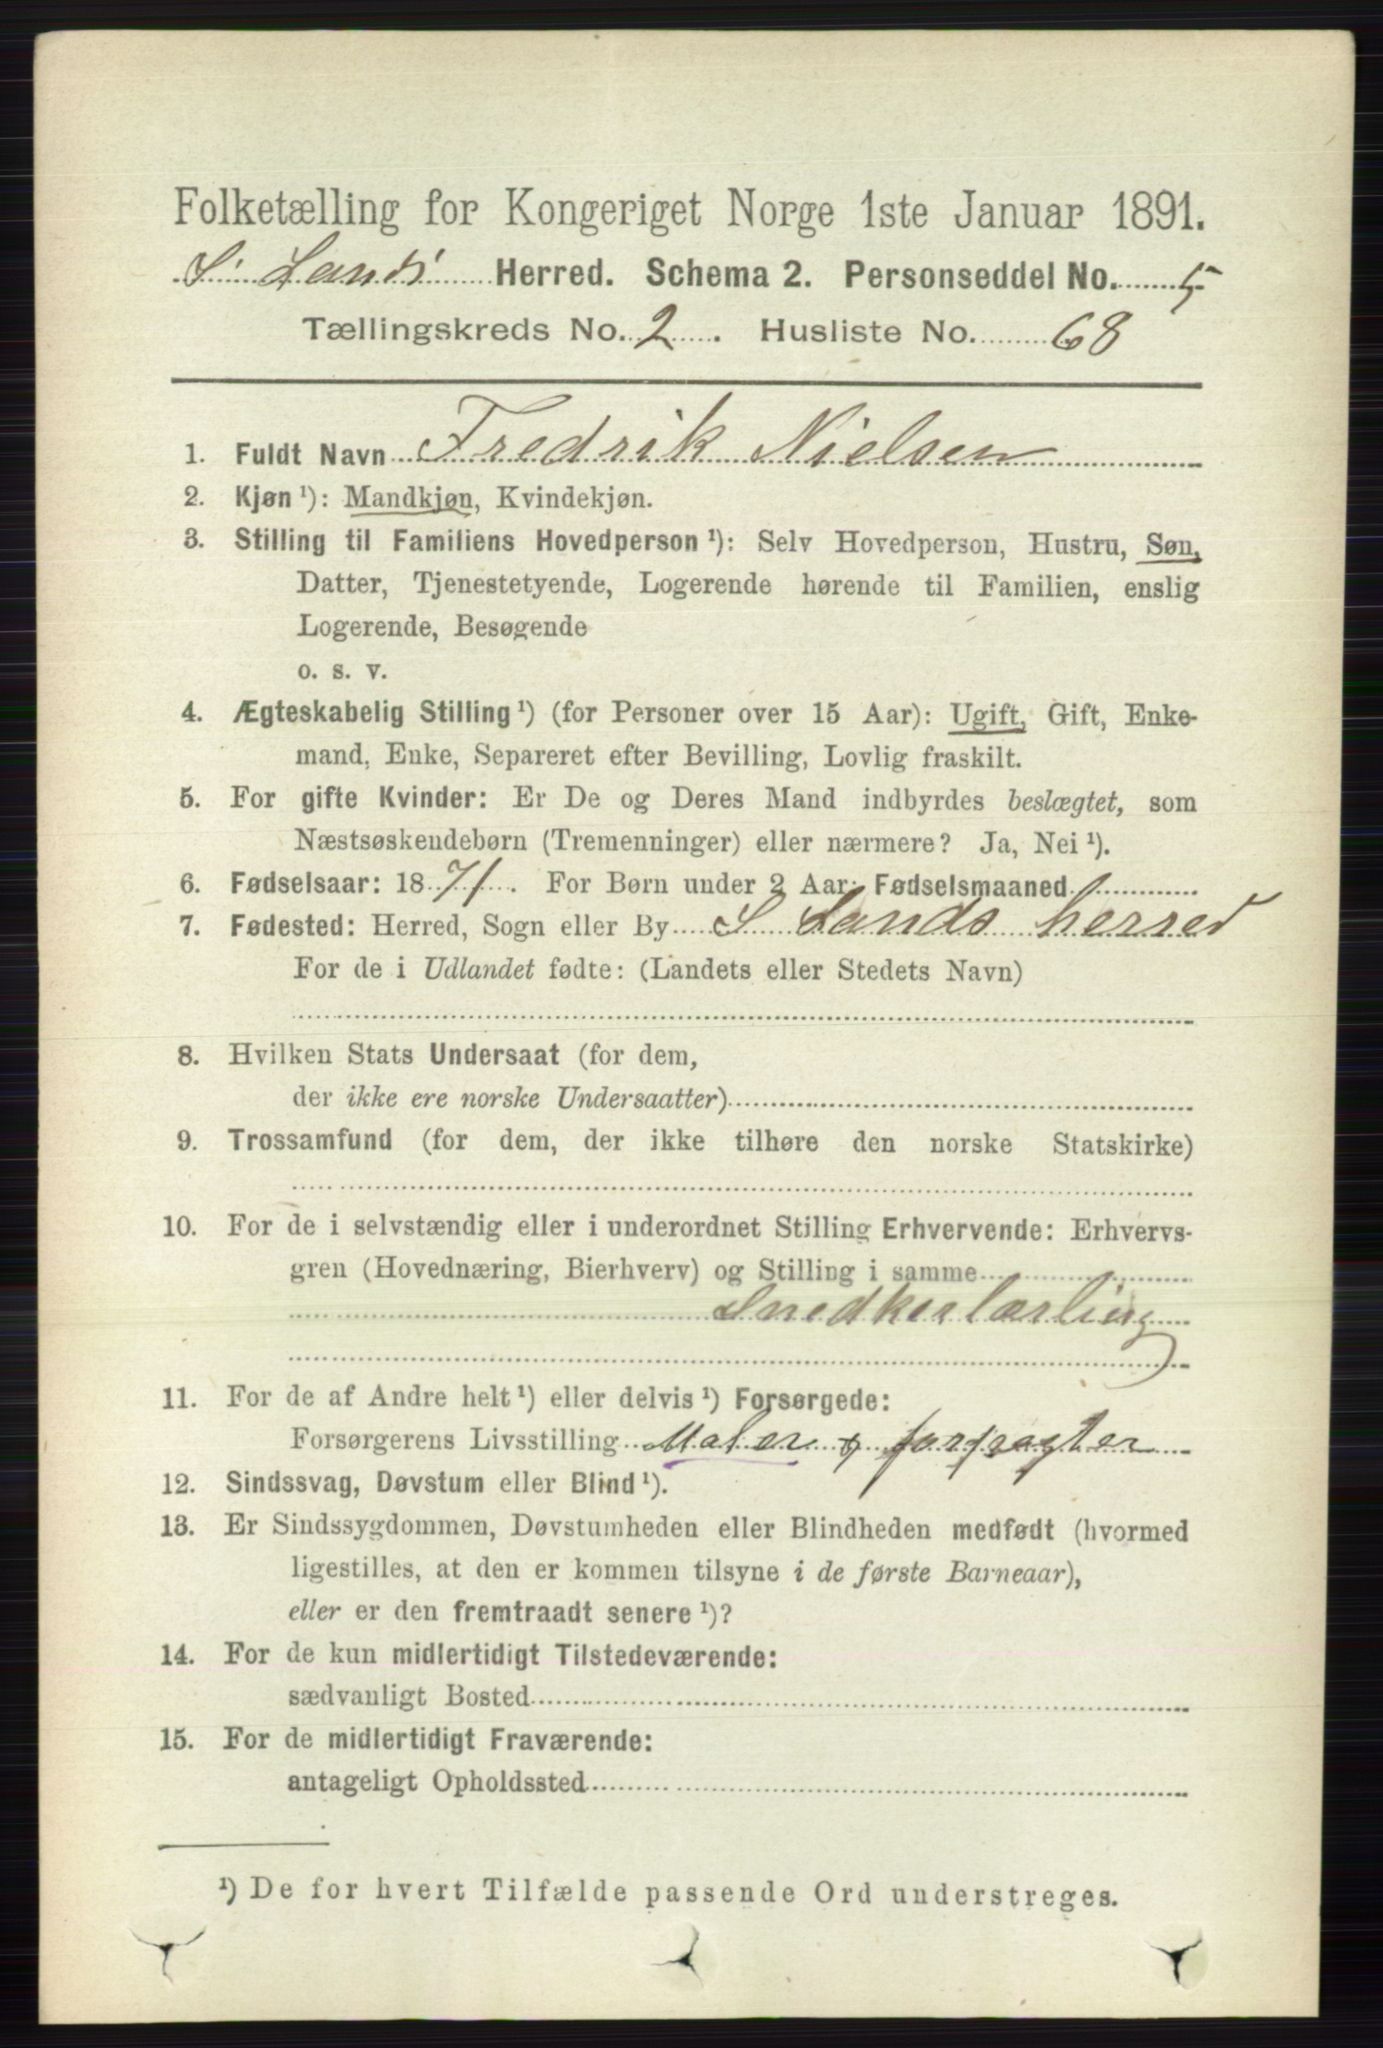 Folketælling for Kongeriget Norge 1ste Januar 1891.
S. Lands Herred. Schema 2. Personseddel No. 5
Tællingskreds No. 2. Husliste No. 68
1. Fuldt Navn Fredrik Nielsen
2. Kjøn ¹): Mandkjøn, Kvindekjøn.
3. Stilling til Familiens Hovedperson ¹): Selv Hovedperson, Hustru, Søn,
Datter, Tjenestetyende, Logerende hørende til Familien, enslig
Logerende, Besøgende
o. s. v.
4. Ægteskabelig Stilling ¹) (for Personer over 15 Aar): Ugift, Gift, Enke-
mand, Enke, Separeret efter Bevilling, Lovlig fraskilt.
5. For gifte Kvinder: Er De og Deres Mand indbyrdes beslægtet, som
Næstsøskendebørn (Tremenninger) eller nærmere? Ja, Nei ¹).
6. Fødselsaar: 1871. For Børn under 2 Aar: Fødselsmaaned
7. Fødested: Herred, Sogn eller By S Lands herred
For de i Udlandet fødte: (Landets eller Stedets Navn)
8. Hvilken Stats Undersaat (for dem,
der ikke ere norske Undersaatter)
9. Trossamfund (for dem, der ikke tilhøre den norske Statskirke)
10. For de i selvstændig eller i underordnet Stilling Erhvervende: Erhvervs-
gren (Hovednæring, Bierhverv) og Stilling i samme
Snedkerlærling
11. For de af Andre helt ¹) eller delvis ¹) Forsørgede:
Forsørgerens Livsstilling Maler & forpagter
12. Sindssvag, Døvstum eller Blind ¹).
13. Er Sindssygdommen, Døvstumheden eller Blindheden medfødt (hvormed
ligestilles, at den er kommen tilsyne i de første Barneaar),
eller er den fremtraadt senere ¹)?
14. For de kun midlertidigt Tilstedeværende:
sædvanligt Bosted
15. For de midlertidigt Fraværende:
antageligt Opholdssted
¹) De for hvert Tilfælde passende Ord understreges.